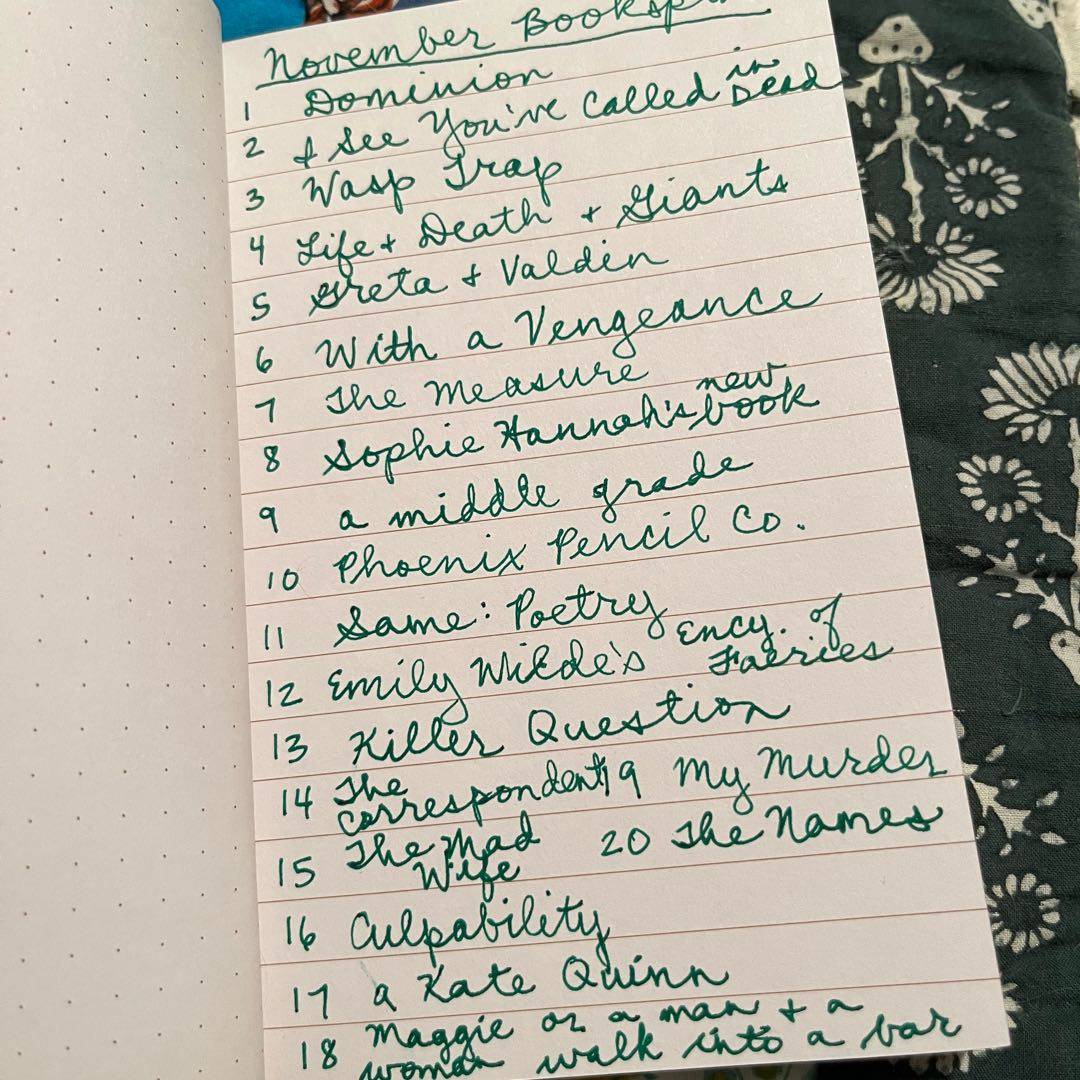 November
1 Dominion
2 I See You've Called in Dead
3 Wasp Trap
4 Life + Death + Giants
5 Greta + Valdin
6 With a Vengeance
7 The Measure
8 Sophie Hannah's new book
9 a middle grade
10 Phoenix Pencil Co.
11 Same: Poetry
12 Emily Wilde's Ency. of Faeries
13 Killer Question
14 The Correspondent 19 My Murder
15 The Mad Wife 20 The Names
16 Culpability
17 a Kate Quinn
18 Maggie or a man + a
woman walk into a bar